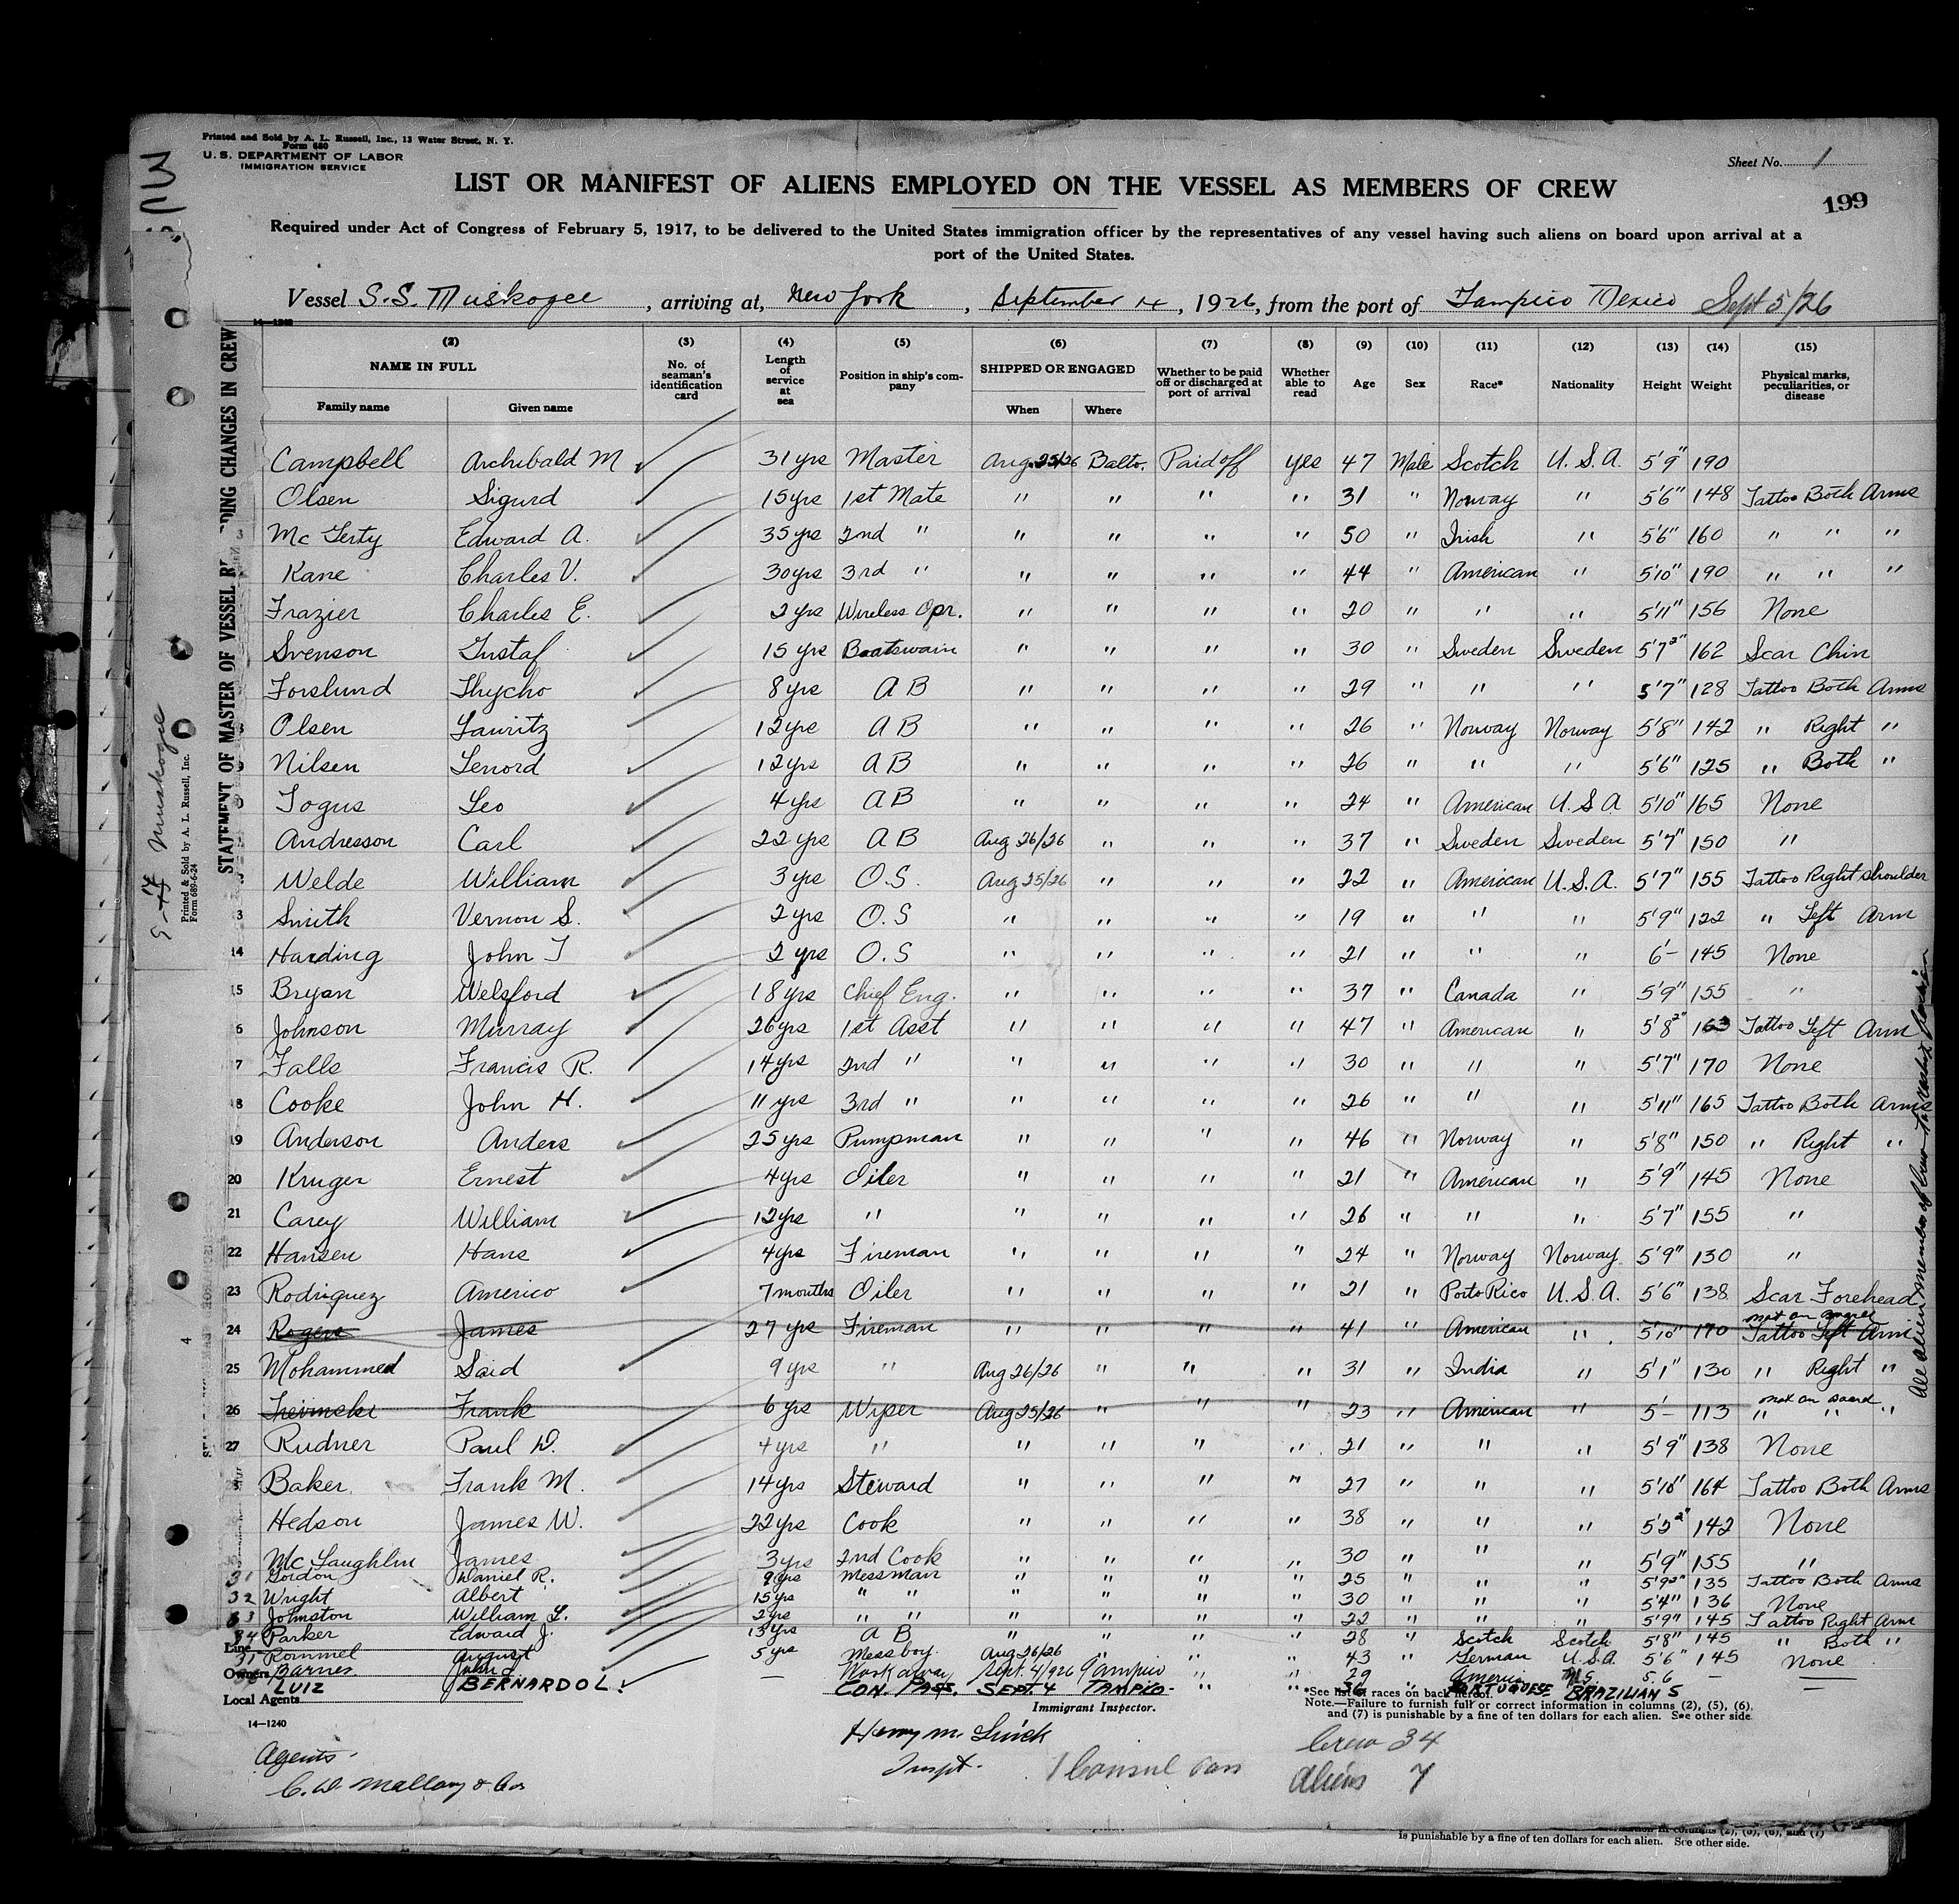 Printed and Sold by A. L. Russell, Inc., 13 Water Street, N. Y.
Form 680
U. S. DEPARTMENT OF LABOR
IMMIGRATION SERVICE
Sheet No. 1
LIST OR MANIFEST OF ALIENS EMPLOYED ON THE VESSEL AS MEMBERS OF CREW
199
Required under Act of Congress of February 5, 1917, to be delivered to the United States immigration officer by the representatives of any vessel having such aliens on board upon arrival at a
port of the United States.
Vessel S.S. Muskogee, arriving at, New York, September 14, 1926, from the port of Tampico Mexico Sept 5/26
14—1240
(2) (3) (4) (5) (6) (7) (8) (9) (10) (11) (12) (13) (14) (15)
NAME IN FULL No. of seaman's identification card Length of service at sea Position in ship's company SHIPPED OR ENGAGED Whether to be paid off or discharged at port of arrival Whether able to read Age Sex Race* Nationality Height Weight Physical marks, peculiarities, or disease
Family name Given name When Where
Campbell Archibald M 31 yrs Master Aug. 25/26 Balto. Paid off yes 47 Male Scotch U.S.A. 5'9" 190
Olsen Sigurd 15 yrs 1st Mate " " " " 31 " Norway " 5'6" 148 Tattoo Both Arms
3 Mc Gerty Edward A. 35 yrs 2nd " " " " " 50 " Irish " 5'6" 160 " " "
Kane Charles V. 30 yrs 3rd " " " " " 44 " American " 5'10" 190 " " "
Frazier Charles E. 2 yrs Wireless Opr. " " " " 20 " " " 5'11" 156 None
Svenson Gustaf 15 yrs Boatswain " " " " 30 " Sweden Sweden 5'7²" 162 Scar Chin
Forslund Thycho 8 yrs A B " " " " 29 " " " 5'7" 128 Tattoo Both Arms
Olsen Lauritz 12 yrs A B " " " " 26 " Norway Norway 5'8" 142 " Right "
Nilsen Lenord 12 yrs A B " " " " 26 " " " 5'6" 125 " Both "
Togus Leo 4 yrs A B " " " " 24 " American U.S.A 5'10" 165 None
Andresson Carl 22 yrs A B Aug 26/26 " " " 37 " Sweden Sweden 5'7" 150 "
Welde William 3 yrs O.S. Aug 25/26 " " " 22 " American U.S.A. 5'7" 155 Tattoo Right Shoulder
3 Smith Vernon S. 2 yrs O.S " " " " 19 " " " 5'9" 122 " Left Arm
14 Harding John T 2 yrs O.S " " " " 21 " " " 6'- 145 None
15 Bryan Welsford 18 yrs Chief Eng. " " " " 37 " Canada " 5'9" 155 "
6 Johnson Murray 26 yrs 1st Asst " " " " 47 " American " 5'8²" 163 Tattoo Left Arm
7 Falls Francis R. 14 yrs 2nd " " " " " 30 " " " 5'7" 170 None
18 Cooke John H. 11 yrs 3rd " " " " " 26 " " " 5'11" 165 Tattoo Both Arms
19 Anderson Anders 25 yrs Pumpman " " " " 46 " Norway " 5'8" 150 " Right "
20 Kruger Ernest 4 yrs Oiler " " " " 21 " American " 5'9" 145 None
21 Carey William 12 yrs " " " " " 26 " " " 5'7" 155 "
22 Hansen Hans 4 yrs Fireman " " " " 24 " Norway Norway 5'9" 130 "
23 Rodriguez Americo 7 months Oiler " " " " 21 " Porto Rico U.S.A. 5'6" 138 Scar Forehead
24 Rogers James 27 yrs Fireman " " " " 41 " American " 5'10" 170 Tattoo Left Arm
25 Mohammed Said 9 yrs " Aug 26/26 " " " 31 " India " 5'1" 130 " Right "
not on board
26 Trevinski Frank 6 yrs Wiper Aug 25/26 " " " 23 " American " 5'- 113 " " "
27 Rudner Paul D. 4 yrs " " " " " 21 " " " 5'9" 138 None
Baker Frank M. 14 yrs Steward " " " " 27 " " " 5'10" 164 Tattoo Both Arms
Hedson James W. 22 yrs Cook " " " " 38 " " " 5'5²" 142 None
Mc Laughlin James 3 yrs 2nd Cook " " " " 30 " " " 5'9" 155 "
31 Gordon Daniel R. 9 yrs Messman " " " " 25 " " " 5'9²" 135 Tattoo Both Arms
32 Wright Albert 15 yrs " " " " " " 30 " " " 5'4" 136 None
33 Johnston William L. 2 yrs " " " " " " 22 " " " 5'9" 145 Tattoo Right Arm
34 Parker Edward J. 13 yrs A B " " " " 28 " Scotch Scotch 5'8" 145 " Both "
Line
35 Rommel August 5 yrs Mess boy. Aug 26/26 " " " 43 " German U.S.A. 5'6" 145 None
Owners Barnes John Workaway Sept. 4/1926 Tampico " " 29 " Americ 5 6 —
LUIZ BERNARDO L. CON. PASS. SEPT. 4 TAMPICO - " " 36 " PORTUGUESE BRAZILIAN 5 —
Local Agents
Immigrant Inspector.
*See list of races on back hereof.
Note.—Failure to furnish full or correct information in columns (2), (5), (6),
and (7) is punishable by a fine of ten dollars for each alien. See other side.
14—1240
Harry M.
Inspt.
1 Consul Pass
Crew 34
Aliens 7
Agents.
C. D. Mallory & Co.
STATEMENT OF MASTER OF VESSEL DING CHANGES IN CREW
Muskogee
Printed & Sold by A. L. Russell, Inc.
Form 689-6-24
4
is punishable by a fine of ten dollars for each alien. See other side.